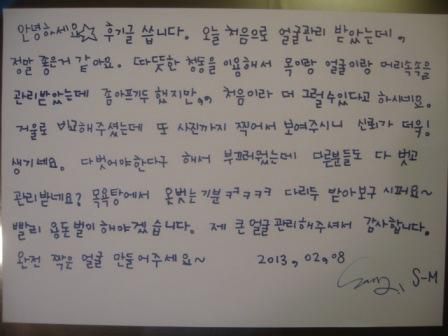 안녕하세요☆ 후기글 씁니다. 오늘 처음으로 얼굴관리 받았는데,
정말 좋은거 같아요. 따뜻한 청동을 이용해서 목이랑 얼굴이랑 머리속속을
관리받았는데 좀아프기두 했지만,, 처음이라 더 그럴수있다고 하시네요.
거울로 비교해주셨는데 또 사진까지 찍어서 보여주시니 신뢰가 더욱!
생기네요. 다벗어야한다구 해서 부끄러웠는데 다른분들도 다 벗고
관리받네요? 목욕탕에서 온벗는기분ㅋㅋㅋㅋ 다리두 받아보구 시퍼요~
빨리 용돈벌이해야겠습니다. 제 큰얼굴관리해주셔서 감사합니다.
완전 짝은 얼굴 만들어주세요~ 2013, 02, 08
S-M